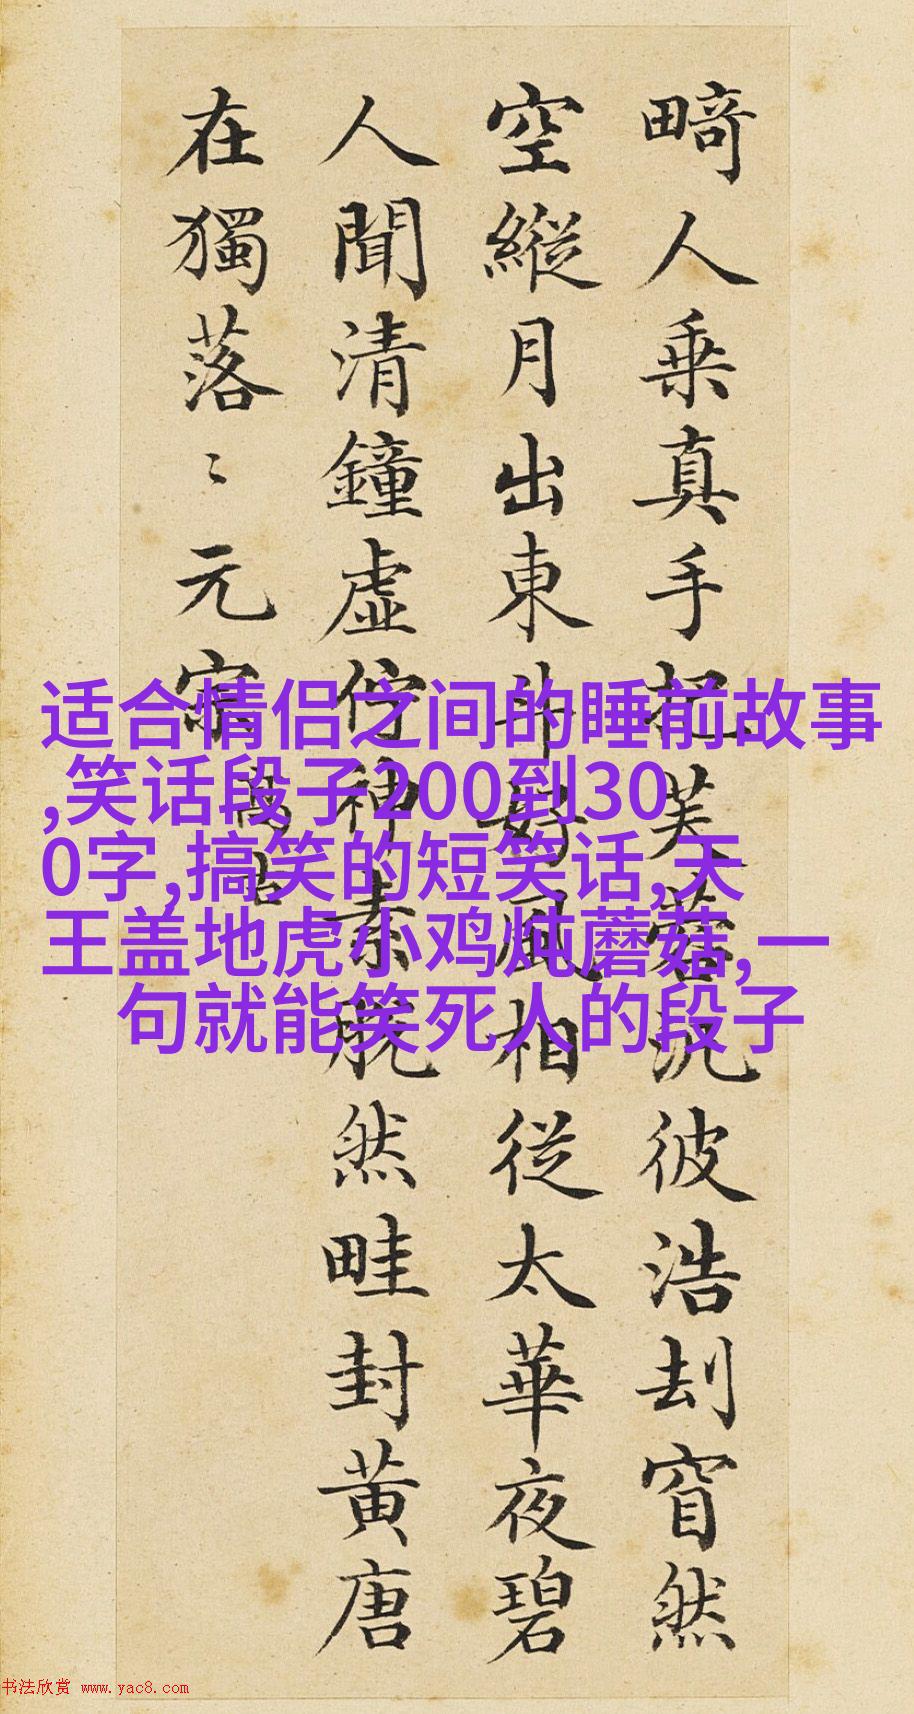 畸人乗真手把芙蓉汎彼浩刦窅然
空縱月出東斗好風相從太華夜碧
人聞清鐘虛佇神素脫然畦封黃唐
在獨落〻元宗
高古
适合情侣之间的睡前故事
,笑话段子200到30
0字,搞笑的短笑话,天
王盖地虎小鸡炖蘑菇,一
句就能笑死人的段子
书法欣赏 www.yac8.com